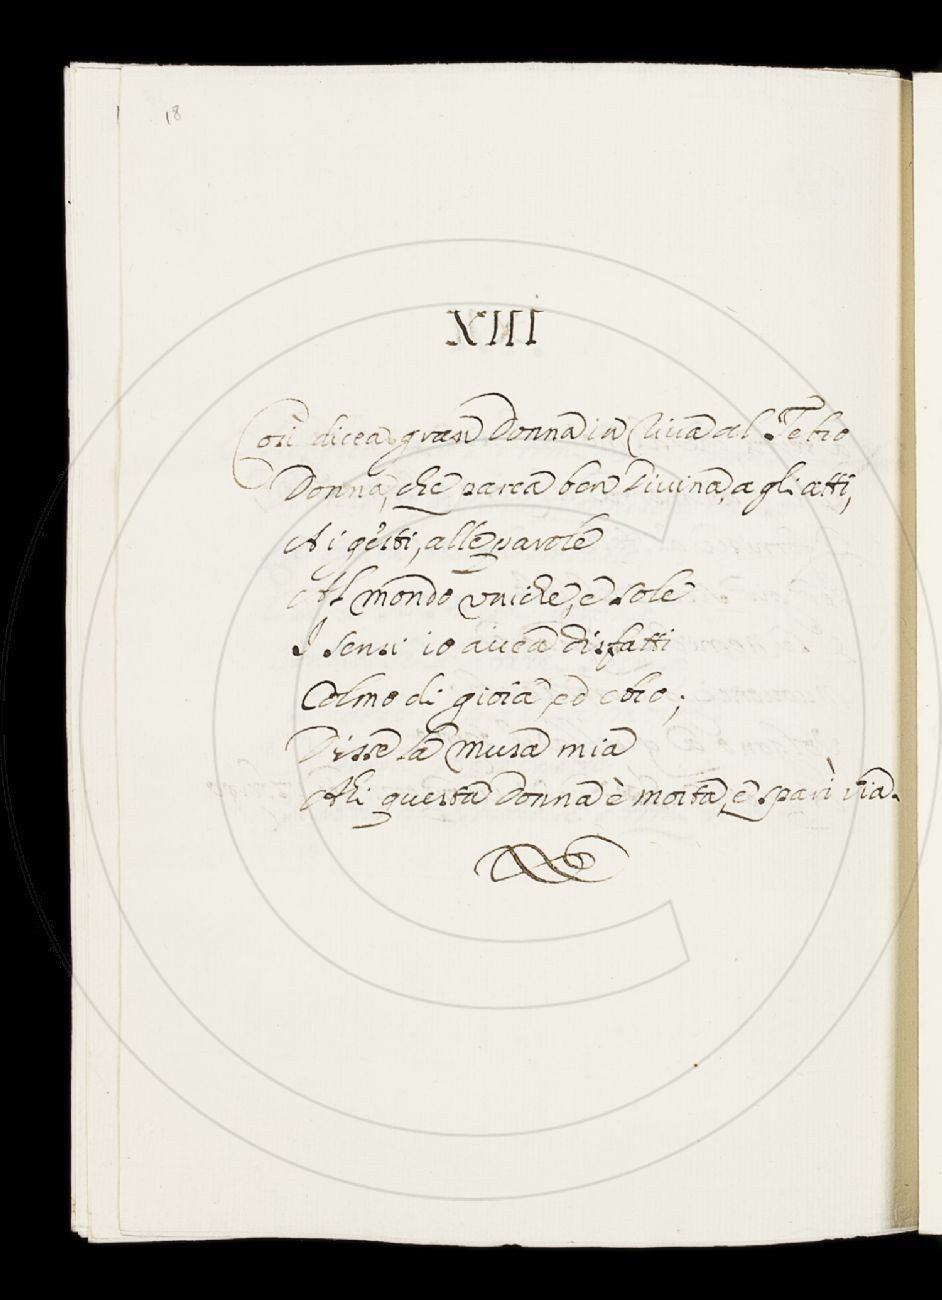 18
XIII
Così dicea gran Donna in riva al Tebro
Donna, che parea ben Divina, a gli atti,
A i gesti, alle parole
Al mondo uniche, e sole
I sensi io avea disfatti
Colmo di gioia ed ebro;
Disse la musa mia
Ahi questa Donna è morta, e sparì via.